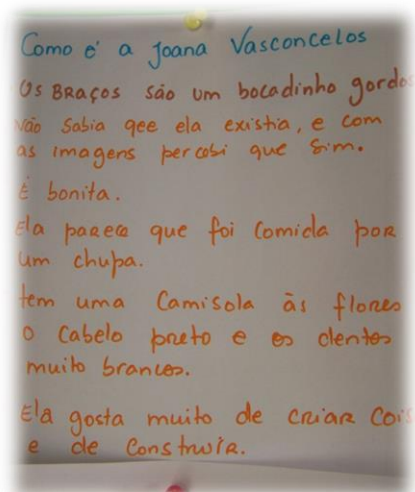 Como é a Joana Vasconcelos
Os BRAços são um bocadinho gordos
Não sabia qee ela existia, e com
as imagens percebi que sim.
É bonita.
Ela parece que foi comida por
um chupa.
tem uma Camisola às flores
o Cabelo preto e os dentes
muito brancos.
Ela gosta muito de criar cois
e de Construir.